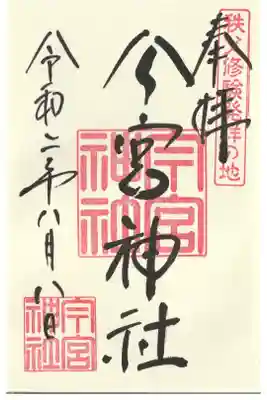 秩父修験発祥の地
奉拝
今宮神社
今宮神社
令和二年八月八日
今宮神社